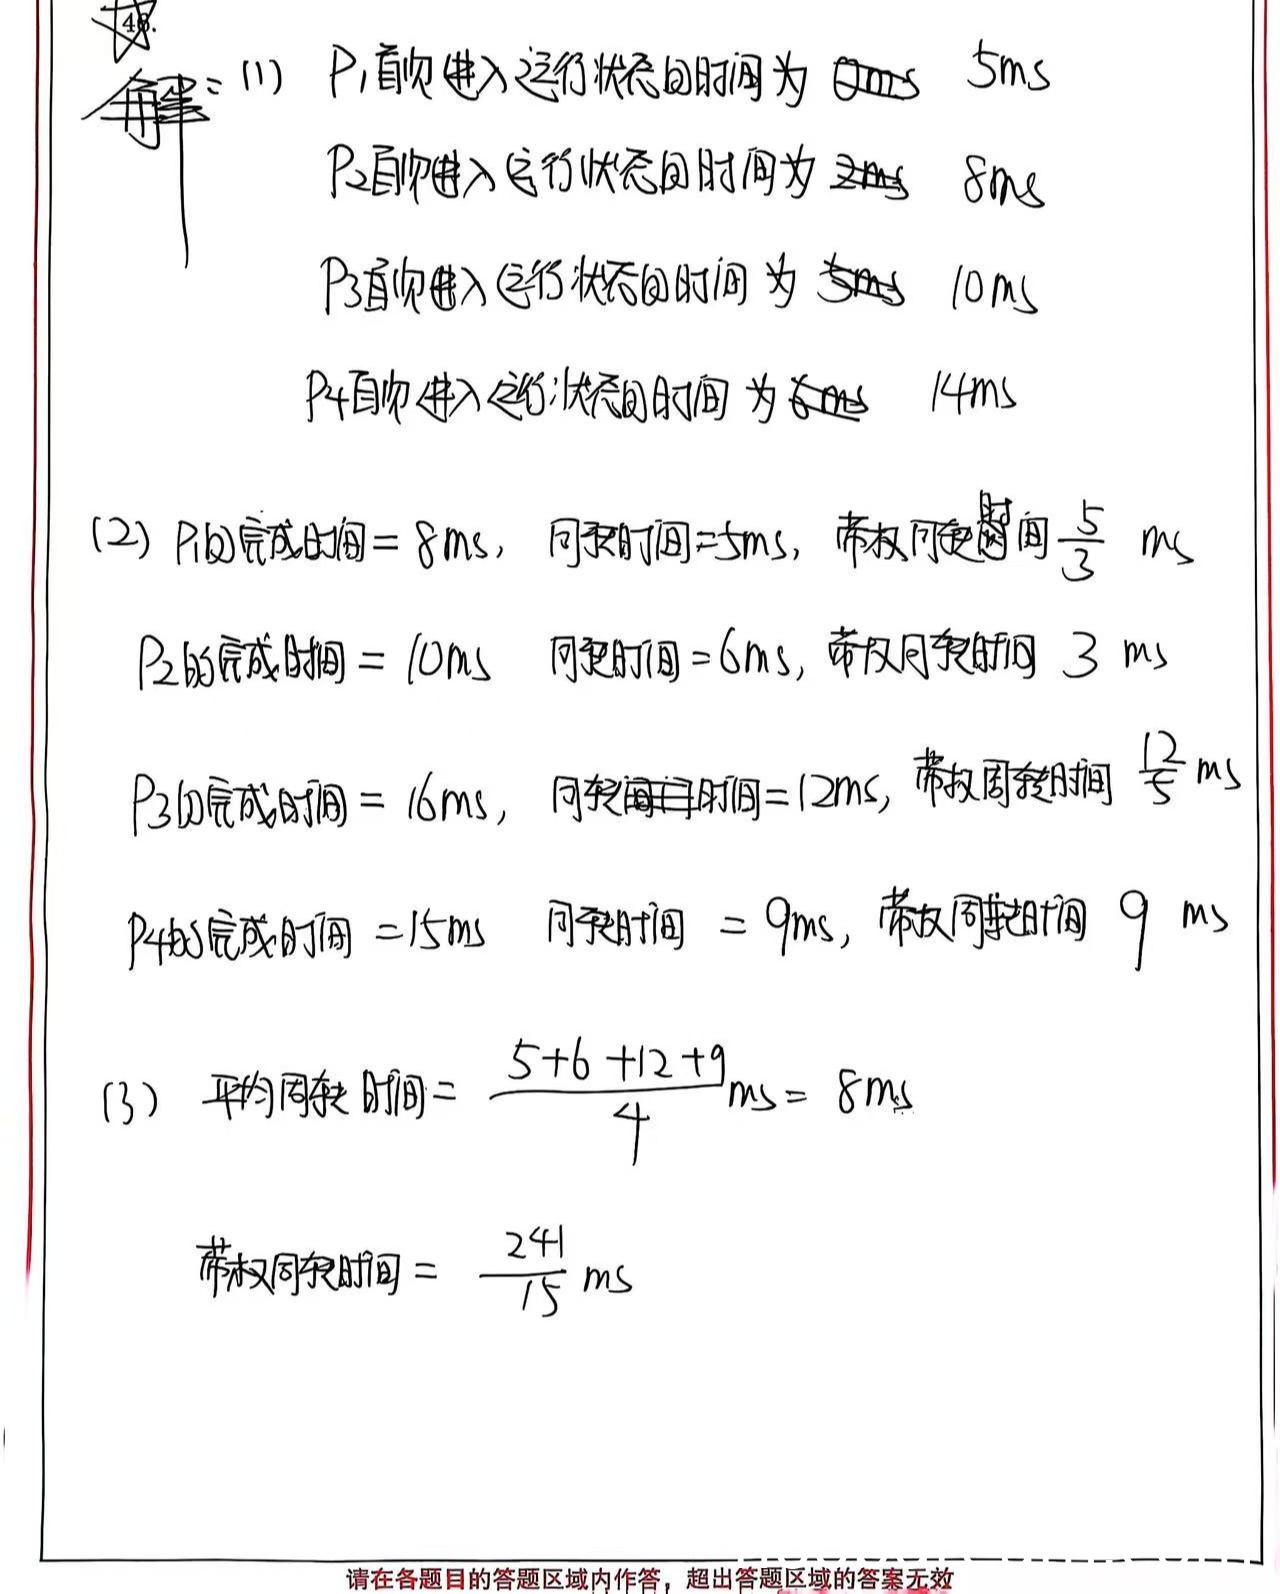 46.
解：(1) P1首次进入运行状态的时间为 0ms 5ms
P2首次进入运行状态的时间为 2ms 8ms
P3首次进入运行状态的时间为 5ms 10ms
P4首次进入运行状态的时间为 6ms 14ms
(2) P1的完成时间=8ms, 周转时间=5ms, 带权周转时间 5/3 ms
P2的完成时间=10ms 周转时间=6ms, 带权周转时间 3 ms
P3的完成时间=16ms, 周转时间=12ms, 带权周转时间 12/5 ms
P4的完成时间=15ms 周转时间=9ms, 带权周转时间 9 ms
(3) 平均周转时间= 5+6+12+9/4 ms= 8ms
带权周转时间= 241/15 ms
请在各题目的答题区域内作答，超出答题区域的答案无效